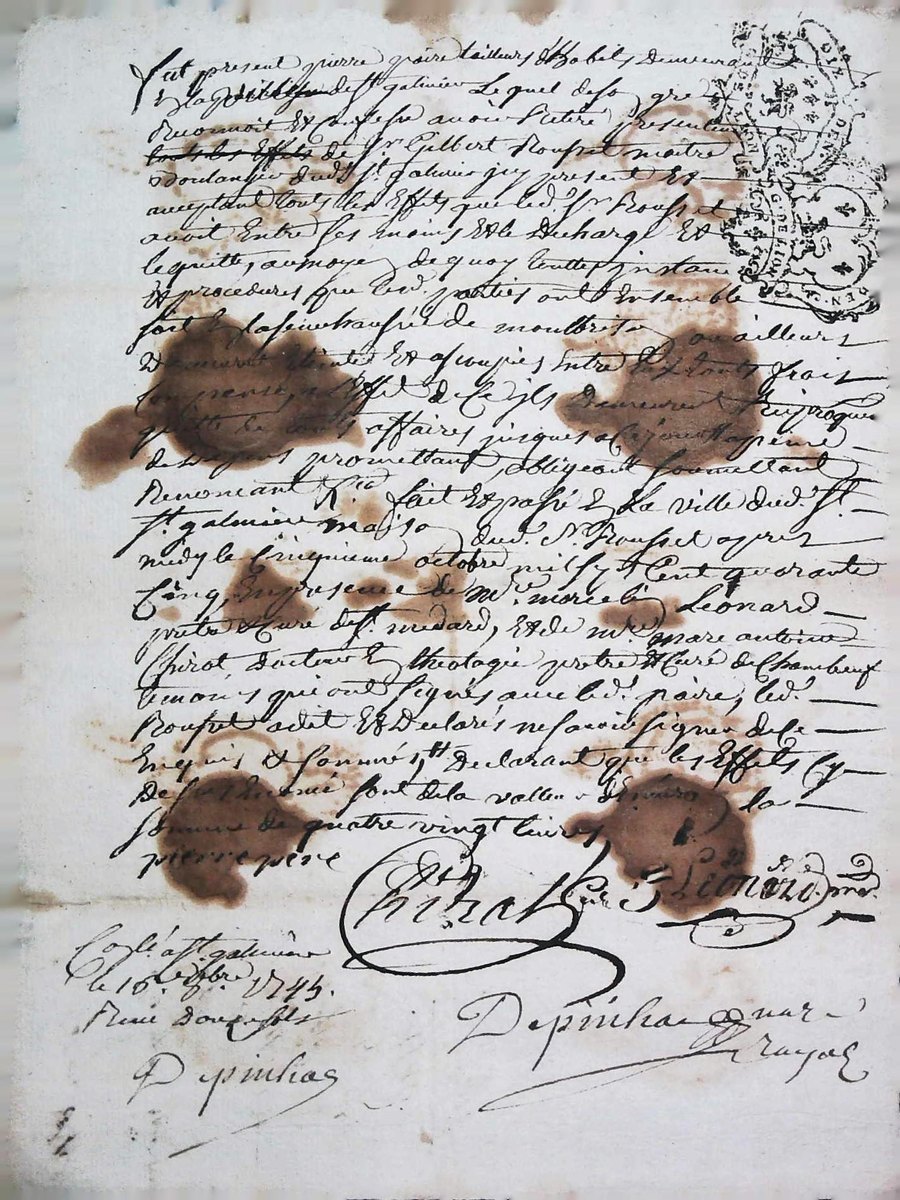 fut present pierre paire tailleurs d'habits demeurant
en la de st galmier Lequel de so gre
Reconnoit Et confesse avoir retiré presentem
tous les Effets de Sr Gilbert Rousset maitre
Boulanger dudt st galmier icy present Et
acceptant touts les Effets que ledt Sr Rousset
avoit Entre ses mains Et le decharge Et
le quitte, au moye de quoy touttes instan
Et procedures que lesd parties ont Ensemble
soit En la senechaussée de montbriso ou ailleurs
demeurent Et assoupies Entre touts frais
compensés, a l'Effet de Ce ils demeurent
quitte de touts affaires jusques a Ce jourd'huy a peine
de promettant, obligeant soumettant
Renoncant fait Et passé En La ville dudt St
St galmier maiso dudt Sr Rousset apres
midy le Cinquieme octobre mil sept Cent quarante
Cinq, En presence de mre marcel Leonard
pretre Curé de St medard, Et de mre marc antoine
Chirat docteur En theologie pretre Et Curé de Chambeuf
temoins qui ont signés avec ledt paire, ledt
Rousset a dit Et declarés ne savoir signer de Ce
Enquis Et sommés, declarant que les Effets Cy
dessus sont de la valleur de la
somme de quatre vingt livres
pierre pere
Chirat Curé Leonard
a st galmier
le 16 8bre 1745.
Receu douze sols
Depinhac
Depinhac
royal